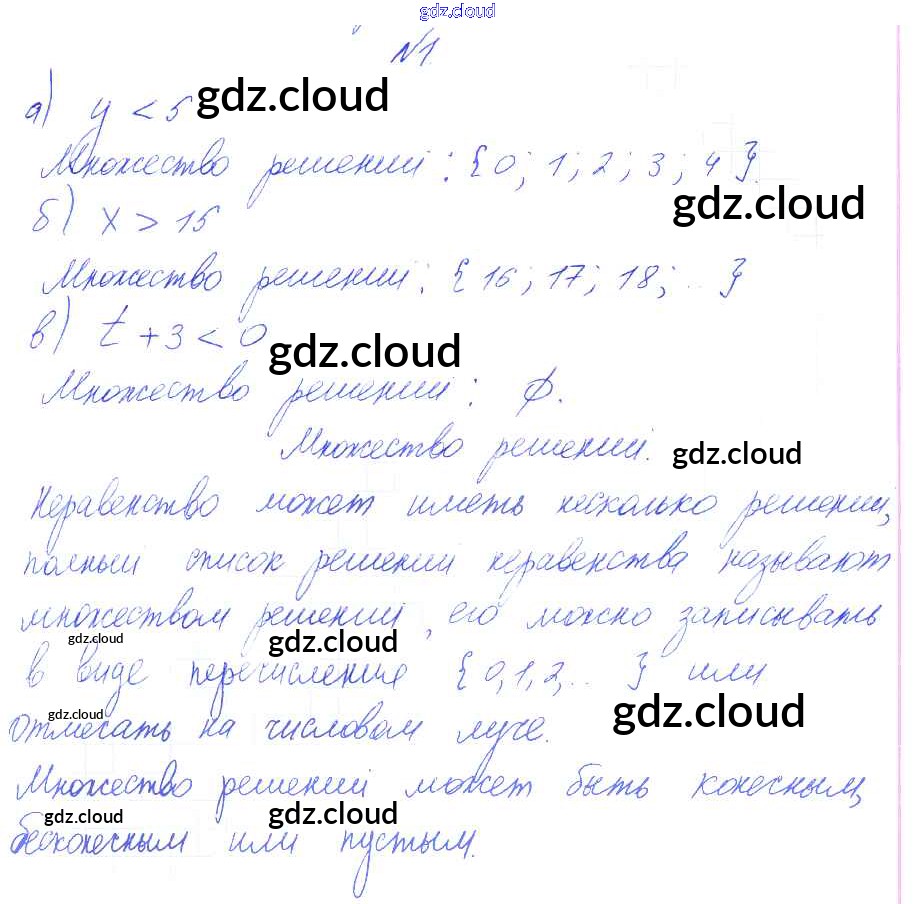 gdz.cloud
№1.
а) y < 5 gdz.cloud
Множество решений: {0; 1; 2; 3; 4}.
б) x > 15 gdz.cloud
Множество решений: {16; 17; 18; ...}
в) t + 3 < 0 gdz.cloud
Множество решений: Ø.
Множество решений. gdz.cloud
Неравенство может иметь несколько решений,
полный список решений неравенства называют
множеством решений, его можно записывать
gdz.cloud gdz.cloud
в виде перечисления {0,1,2,... } или
gdz.cloud gdz.cloud
отмечать на числовом луче.
Множество решений может быть конечным,
gdz.cloud gdz.cloud
бесконечным или пустым.